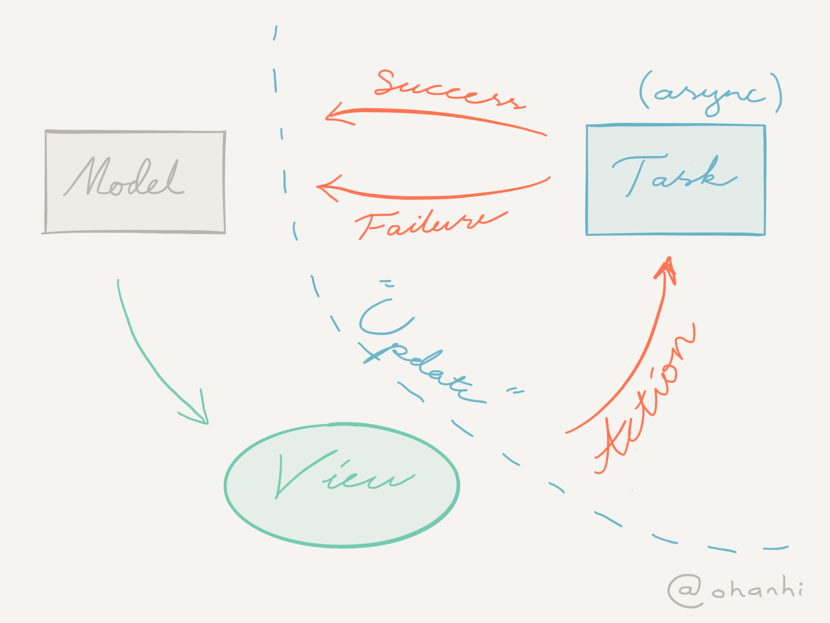 (async)
Success
Model
Task
Failure
"Update"
Action
View
@ohanhi